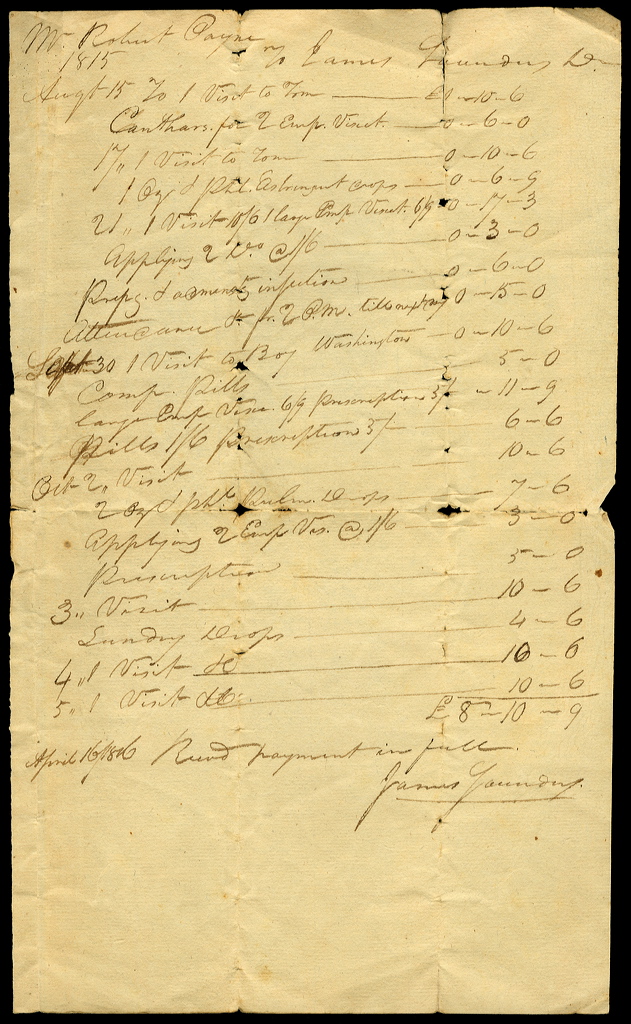 Mr. Robert Payne
1815 To James Saunders Dr
Augt 15 To 1 Visit to Tom — £0–10–6
Canthars. for 2 Emp. Visict. — 0–6–0
17 „ 1 Visit to Tom — 0–10–6
1 Oz d phl. Astringent drops — 0–6–9
21 „ 1 Visit 10/6 1 large Emp Visict. 6/9 0–17–3
Applying 2 Do @ 1/6 — 0–3–0
Prepg. & adminstg injection 0–6–0
Attendance &c fr. 2 P.M. till 0–15–0
Sept 30 1 Visit to Boy Washington — 0–10–6
Comp. Pills 5–0
large Emp Visic. 6/9 prescription 5/ – 11–9
Pills 1/6 Prescription 5/ — 6–6
Oct 2 „ Visit — 10–6
2 Oz d phl. Pulm. Drops — 7–6
Applying 2 Emp Vis. @ 1/6 — 3–0
Prescription — 5–0
3 „ Visit — 10–6
Sundry Drops — 4–6
4 „ 1 Visit &c — 10–6
5 „ 1 Visit &c: 10–6
£8–10–9
April 16 1816 Recvd payment in full.
James Saunders.